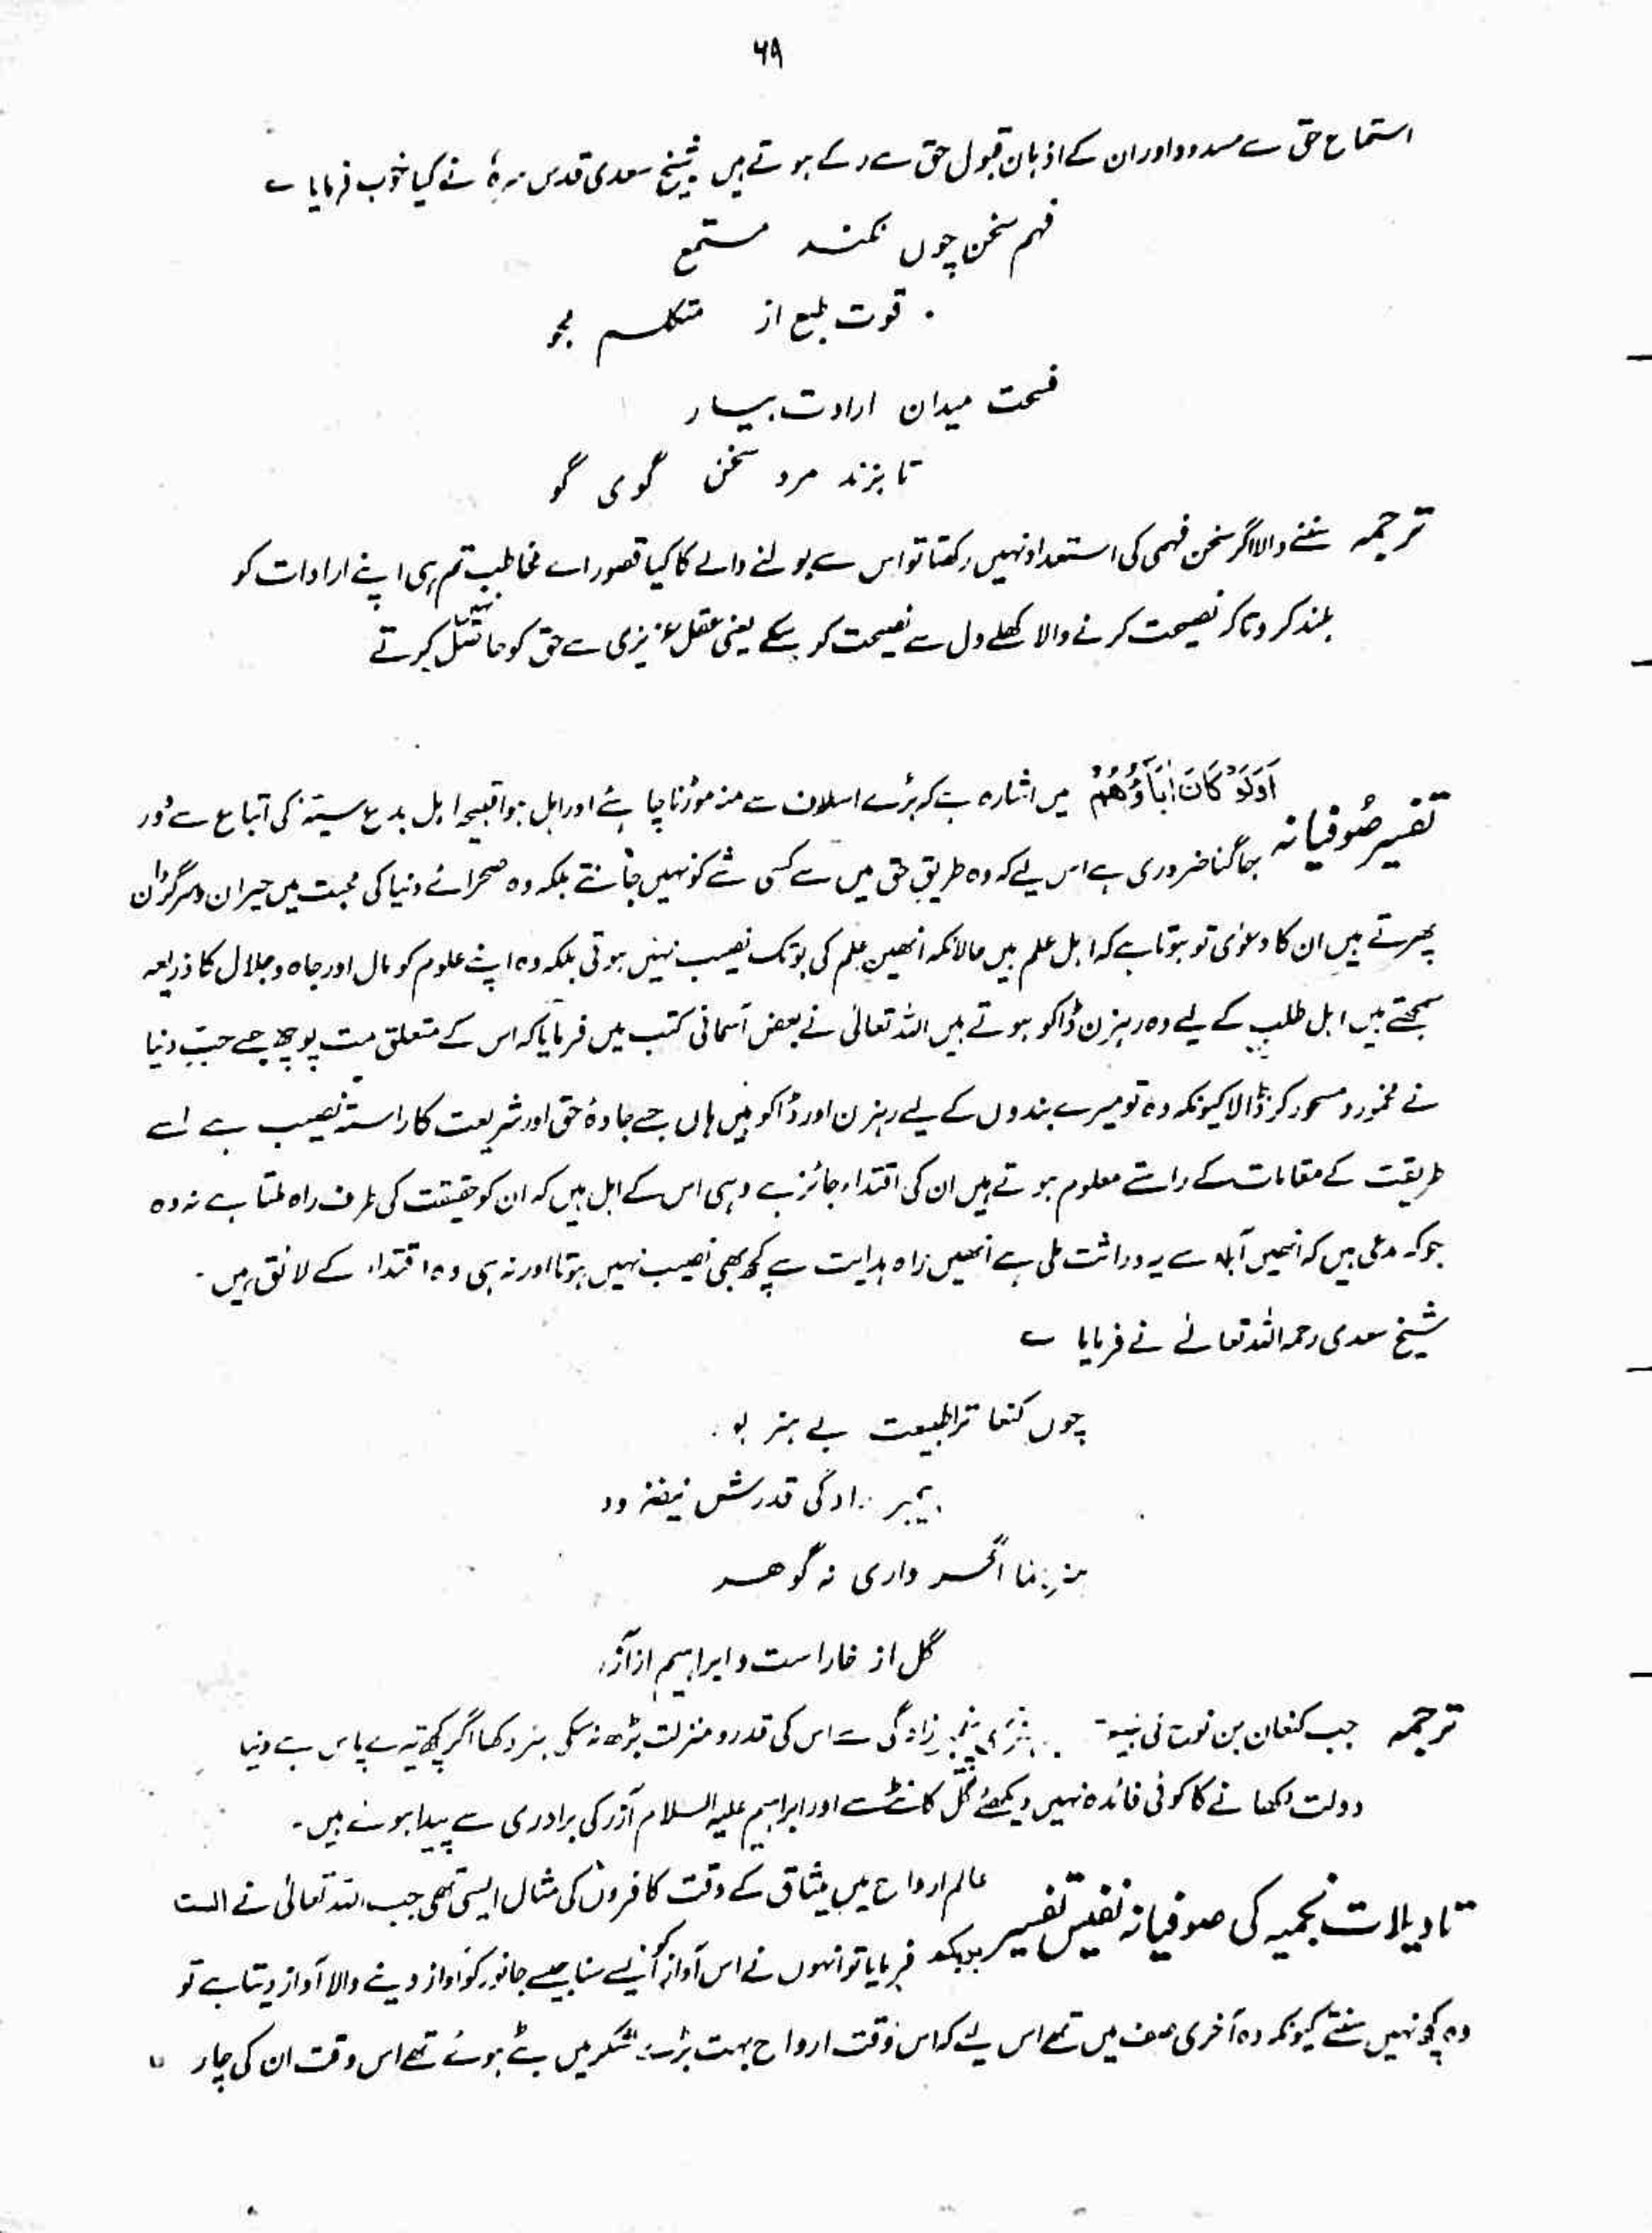 ۶۹
استماع حق سے مسدود اور ان کے اذہان قبول حق سے رکے ہوتے ہیں شیخ سعدی قدس سرہٗ نے کیا خوب فرمایا ؎
فہم سخن چوں نکند مستمع
قوت طبع از متکلم مجو
فسحت میدان ارادت بیار
تا بزند مرد سخن گوی گو
ترجمہ سننے والا اگر سخن فہمی کی استعداد نہیں رکھتا تو اس سے بولنے والے کا کیا قصور اے مخاطب تم ہی اپنے ارادات کو
بلند کرو تاکہ نصیحت کرنے والا کھلے دل سے نصیحت کر سکے یعنی عقل غریزی سے حق کو حاصل نہیں کرتے
تفسیر صُوفیانہ اَوَلَوْ كَانَ اٰبَآؤُهُمْ میں اشارہ ہے کہ بُرے اسلاف سے منہ موڑنا چاہئے اور اہل ہوا قبیحہ اہل بدع سیئہ کی اتباع سے دُور
بھاگنا ضروری ہے اس لیے کہ وہ طریق حق میں سے کسی شے کو نہیں جانتے بلکہ وہ صحرائے دنیا کی محبت میں حیران و سرگرداں
پھرتے ہیں ان کا دعوٰی تو ہوتا ہے کہ اہل علم ہیں حالانکہ انھیں علم کی بو تک نصیب نہیں ہوتی بلکہ وہ اپنے علوم کو مال اور جاہ و جلال کا ذریعہ
سمجھتے ہیں اہل طلب کے لیے وہ رہزن ڈاکو ہوتے ہیں اللہ تعالیٰ نے بعض آسمانی کتب میں فرمایا کہ اس کے متعلق مت پوچھ جسے حبّ دنیا
نے مخمور و مسحور کر ڈالا کیونکہ وہ تو میرے بندوں کے لیے رہزن اور ڈاکو ہیں ہاں جسے جادۂ حق اور شریعت کا راستہ نصیب ہے اسے
طریقت کے مقامات کے راستے معلوم ہوتے ہیں ان کی اقتداء جائز ہے وہی اس کے اہل ہیں کہ ان کو حقیقت کی طرف راہ ملتا ہے نہ وہ
جو کہ مدعی ہیں کہ انھیں آباء سے یہ وراثت ملی ہے انھیں راہ ہدایت سے کچھ بھی نصیب نہیں ہوتا اور نہ ہی وہ اقتداء کے لائق ہیں ۔
شیخ سعدی رحمہ اللہ تعالےٰ نے فرمایا ؎
چوں کنعا ترا طبیعت بے ہنر بو
پیمبر زادگی قدرش نیفزود
ہنر بنما اگر داری نہ گوهر
گل از خار است و ابراہیم از آزر
ترجمہ جب کنعان بن نوح کی طبیعت زادگی سے اس کی قدر و منزلت بڑھ نہ سکی ہنر دکھا اگر کچھ تیرے پاس ہے دنیا
دولت دکھانے کا کوئی فائدہ نہیں دیکھئے گل کانٹے سے اور ابراہیم علیہ السلام آزر کی برادری سے پیدا ہوئے ہیں ۔
تاویلات نجمیہ کی صوفیانہ نفیس تفسیر عالم ارواح میں میثاق کے وقت کافروں کی مثال ایسی تھی جب اللہ تعالیٰ نے الست
بربکم فرمایا تو انہوں نے اس آواز کو ایسے سنا جیسے جانور کو آواز دینے والا آواز دیتا ہے تو
وہ کچھ نہیں سنتے کیونکہ وہ آخری صف میں تھے اس لیے کہ اس وقت ارواح بہت بڑے لشکر میں بٹے ہوئے تھے اس وقت ان کی چار